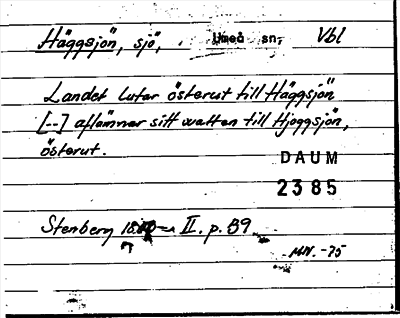 Häggsjön, sjö, . Umeå sn, Vbl
Landet lutar österut till Häggsjön
[--] aflämnar sitt watten till Hjoggsjön,
österut.
DAUM
2385
Stenberg II. p. 59.
MW. -75